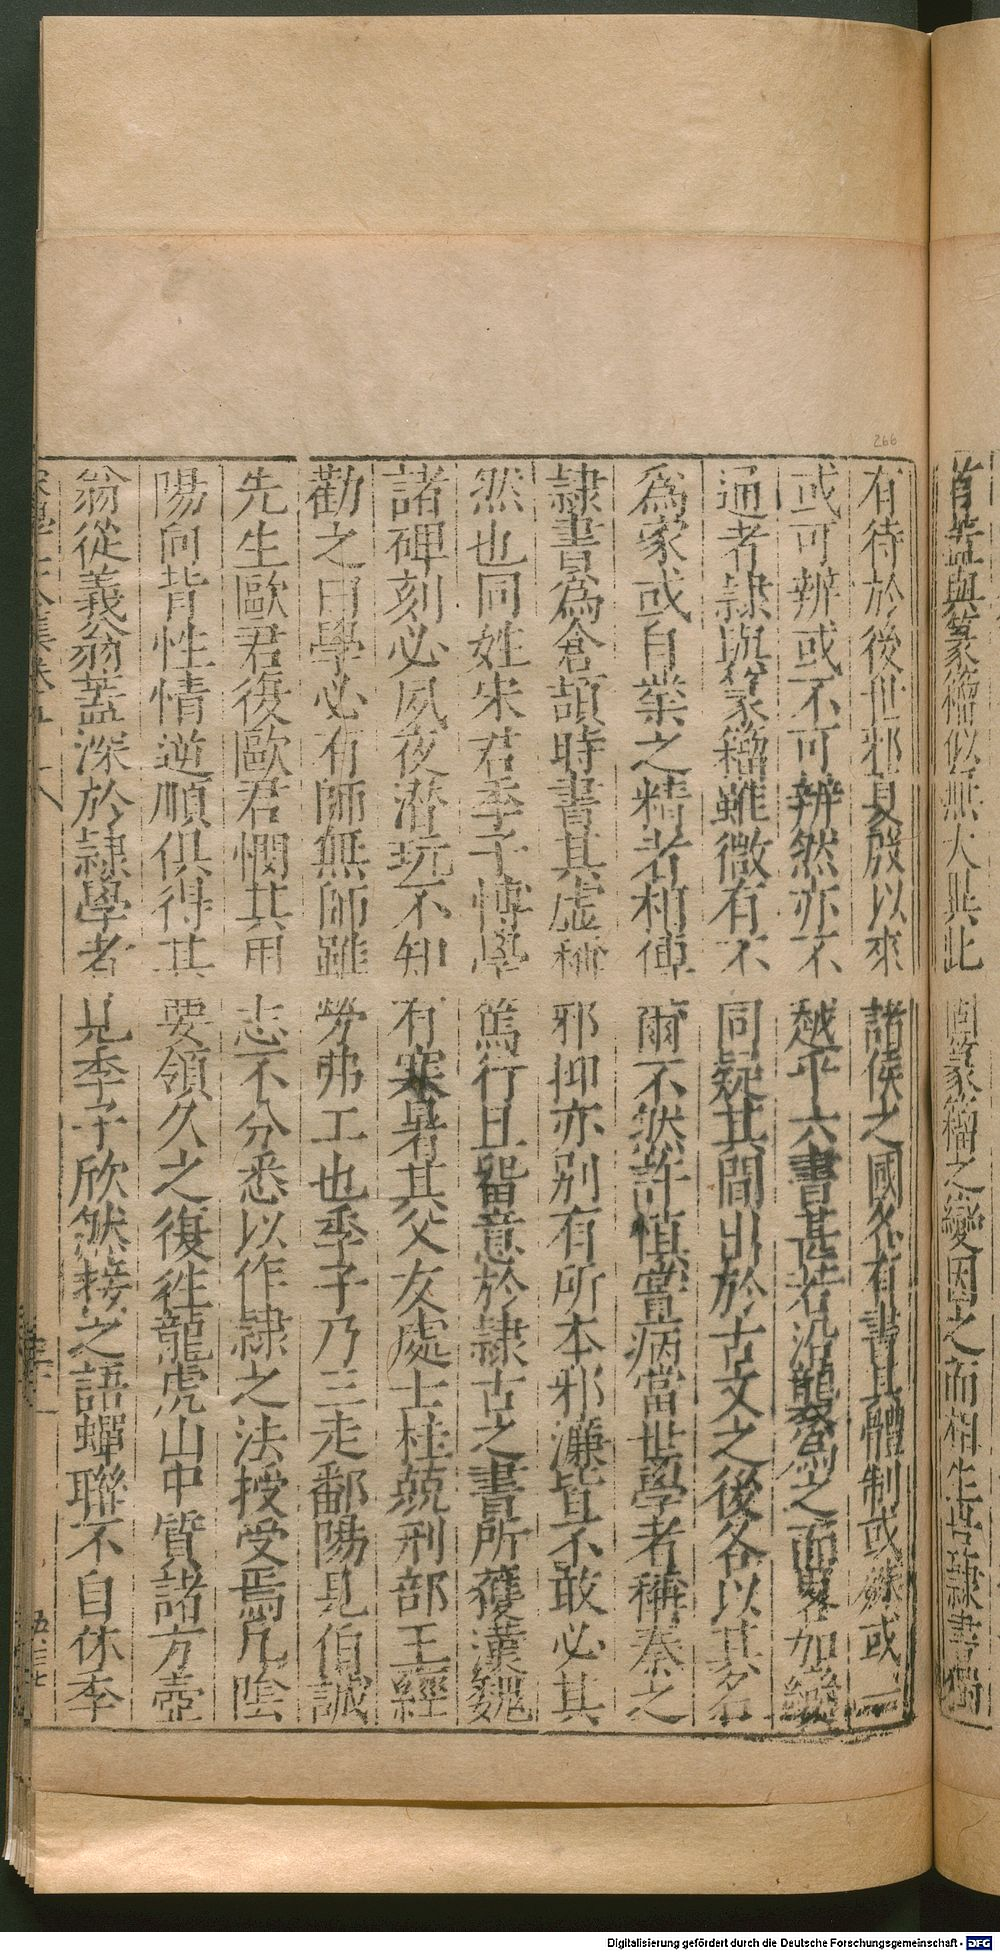 首蓋與篆籀似無大異此因篆籀之變因之而相生。隸書獨
有待於後世邪夏殷以來諸侯之國各有書其體制或殊或一
或可辨或不可辨然亦不越乎六書甚若沿襲爲之而畧加變
通者隸與篆籀雖微有不同疑其間出於古文之後各以其名
爲家或自業之精者相傳爾不然許慎嘗病當世學者稱秦之
隸書爲倉頡時書其虛稱邪抑亦別有所本邪濂皆不敢必其
然也同姓宋君季子博學篤行且留意於隸古之書所獲漢魏
諸碑刻必夙夜潛玩不知有寒暑其父友處士桂兢刑部王經
勸之曰學必有師無師雖勞弗工也季子乃三走鄱陽見伯誠
先生歐君復歐君憫其用志不分悉以作隸之法授受焉凡陰
陽向背性情逆順俱得其要領久之復徃龍虎山中質諸方壺
翁從義翁蓋深於隸學者見季子欣然接之語蟬聯不自休季
266
Digitalisierung gefördert durch die Deutsche Forschungsgemeinschaft - DFG